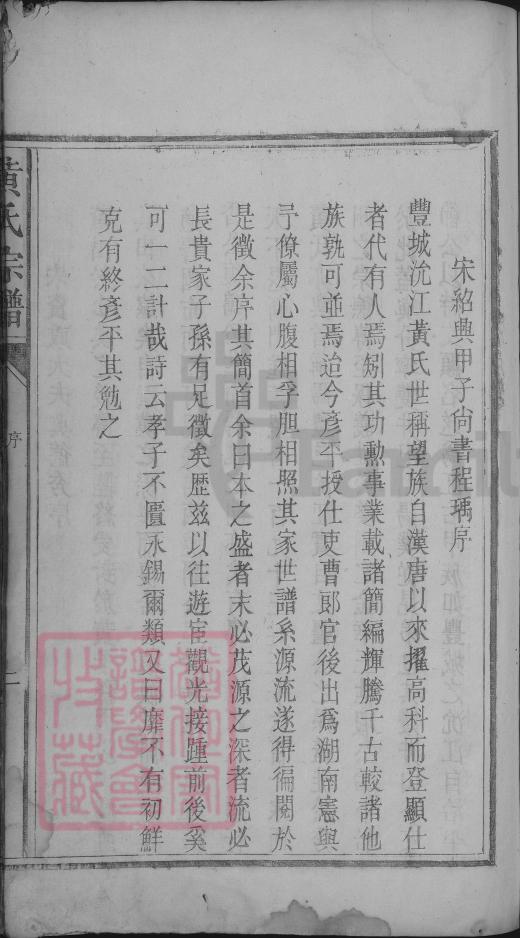 宋紹興甲子尚書程瑀序
豐城沇江黃氏世稱望族自漢唐以來擢高科而登顯仕
者代有人焉矧其功勳事業載諸簡編輝騰千古較諸他
族孰可並焉迨今彥平授仕吏曹郎官後出爲湖南憲與
予僚屬心腹相孚胆相照其家世譜系源流遂得徧閱於
是徵余序其簡首余曰本之盛者末必茂源之深者流必
長貴家子孫有足徵矣歷兹以往遊宦觀光接踵前後奚
可一二計哉詩云孝子不匱永錫爾類又曰靡不有初鮮
克有終彥平其勉之
黃氏宗譜
序
二